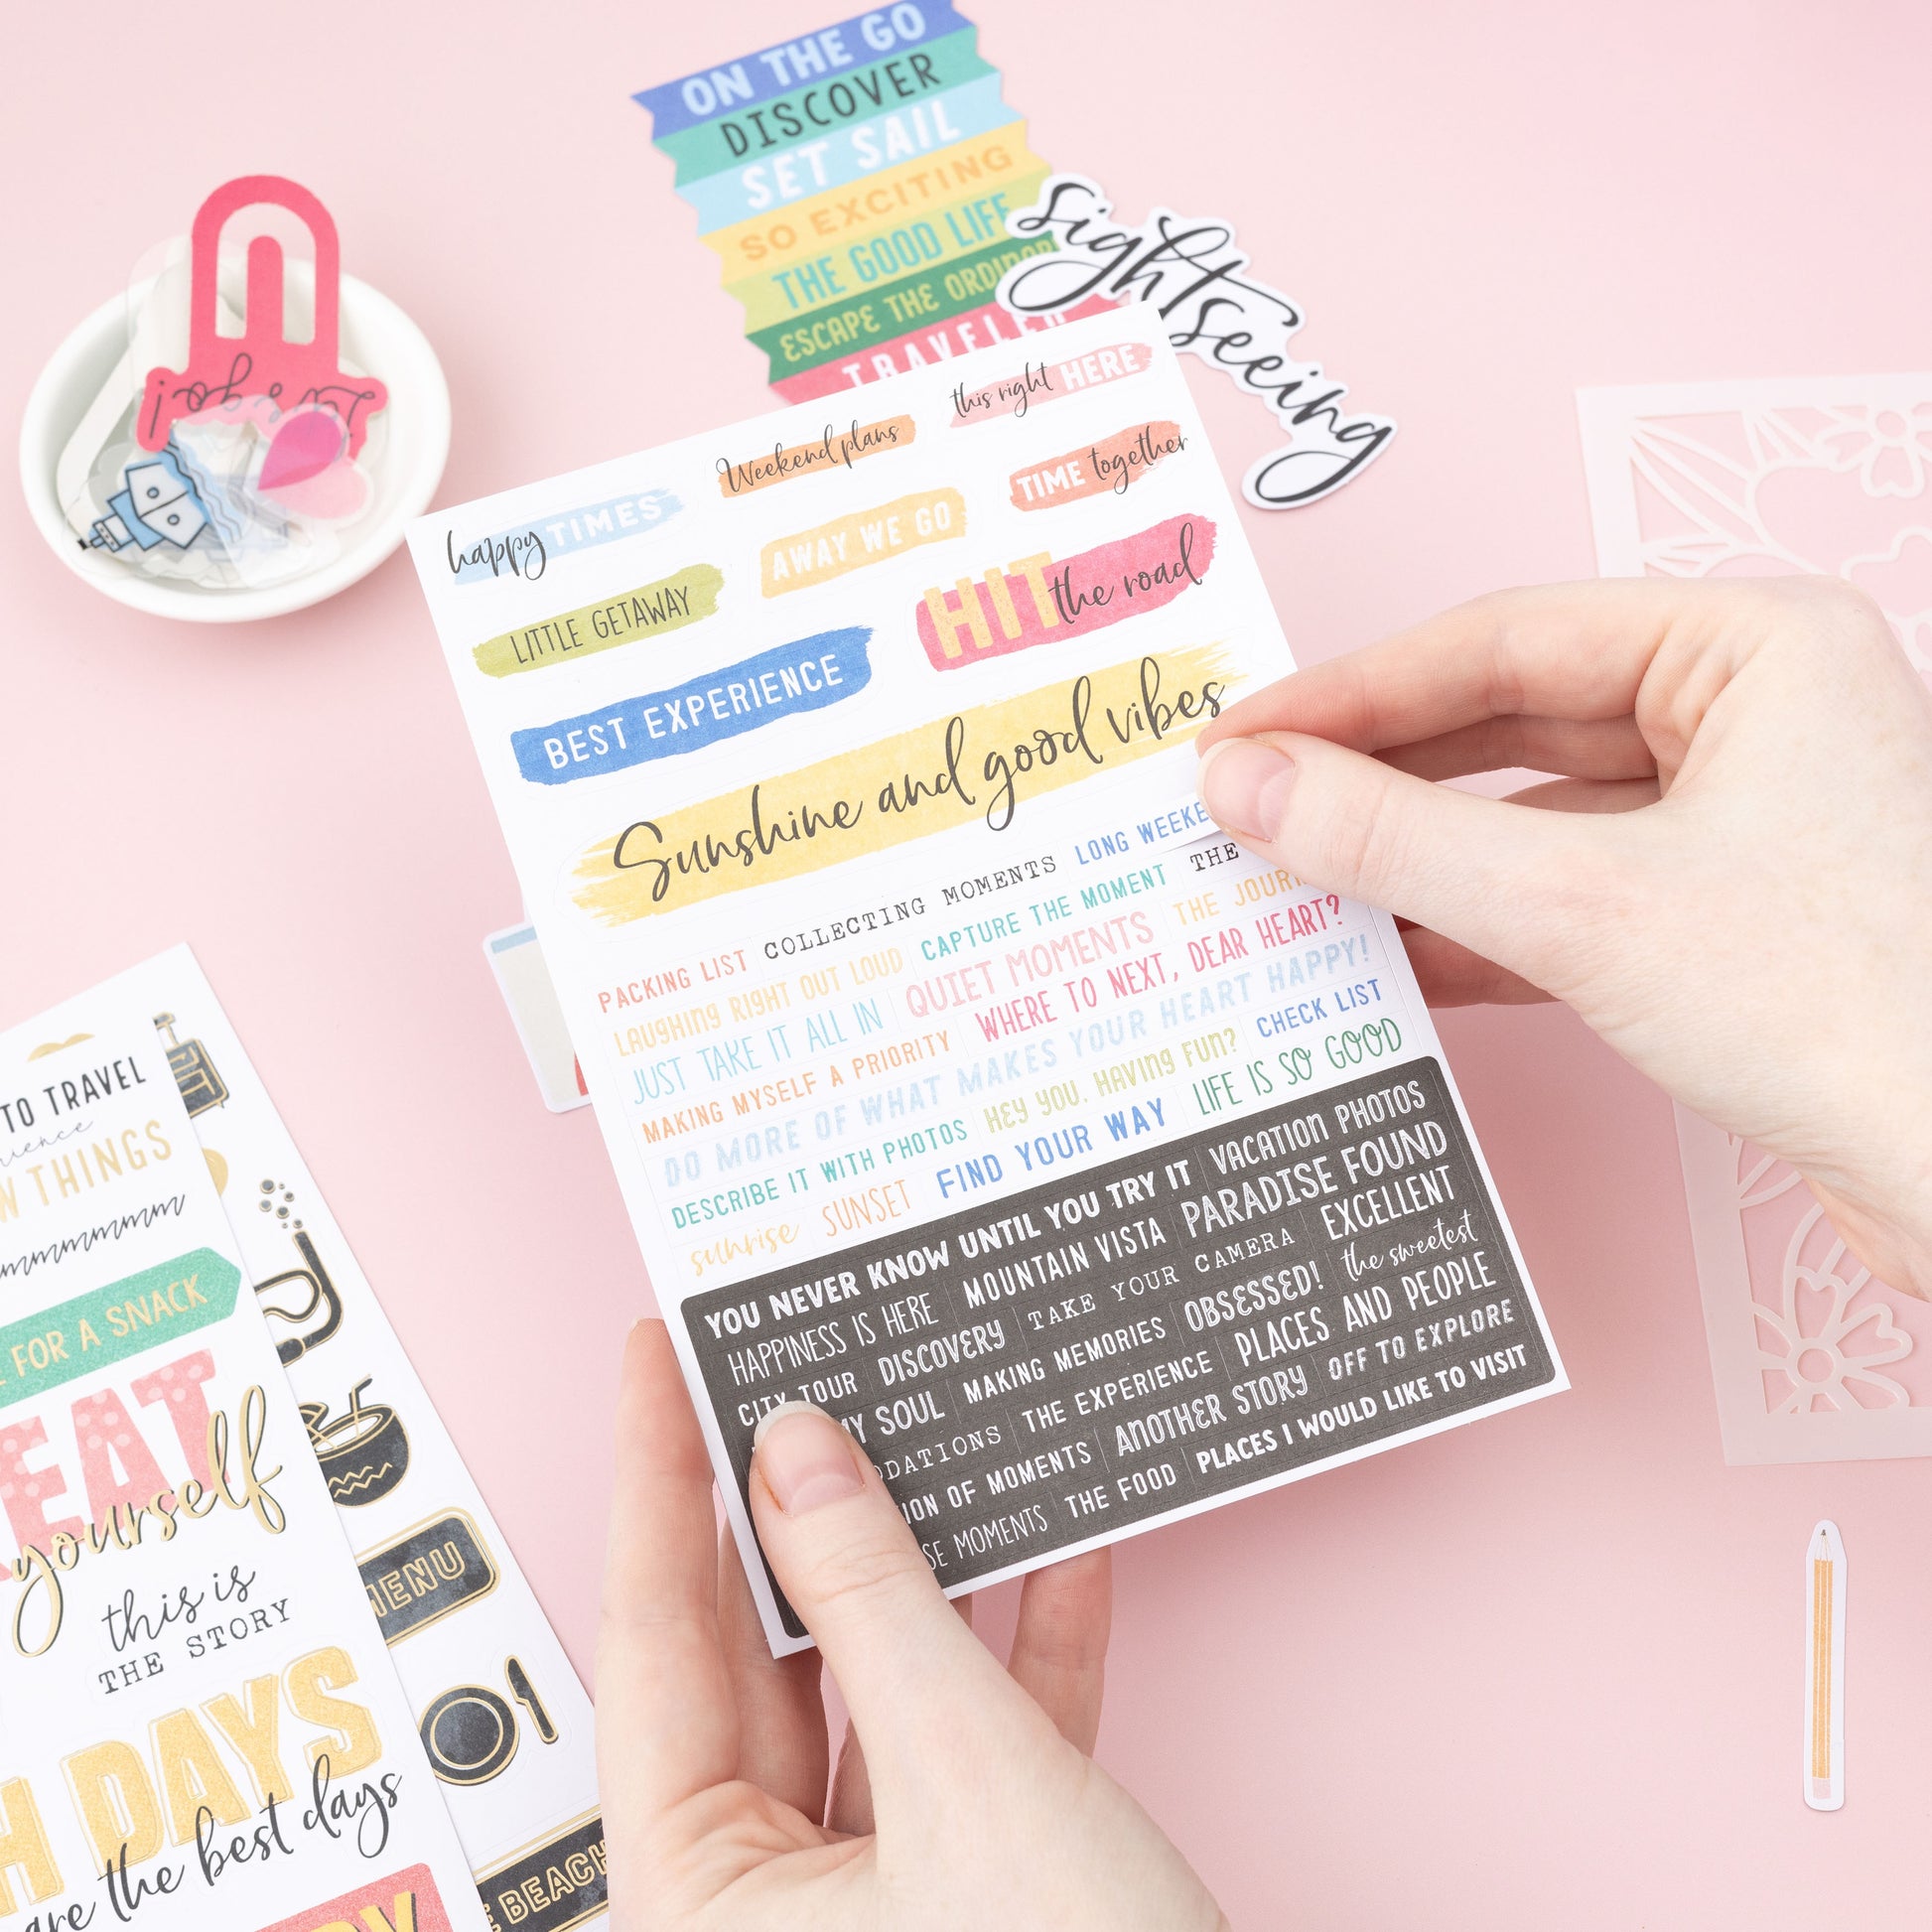 ON THE GO
DISCOVER
SET SAIL
SO EXCITING
THE GOOD LIFE
ESCAPE THE
TRAVELER
sightseeing
let's go!
this right HERE
Weekend plans
TIME together
happy TIMES
AWAY WE GO
HIT the road
LITTLE GETAWAY
BEST EXPERIENCE
Sunshine and good vibes
PACKING LIST COLLECTING MOMENTS LONG
LAUGHING RIGHT OUT LOUD CAPTURE THE MOMENT THE
JUST TAKE IT ALL IN QUIET MOMENTS THE
MAKING MYSELF A PRIORITY WHERE TO NEXT, DEAR HEART?
DO MORE OF WHAT MAKES YOUR HEART HAPPY!
DESCRIBE IT WITH PHOTOS HEY YOU, HAVING FUN? CHECK LIST
sunrise SUNSET FIND YOUR WAY LIFE IS SO GOOD
YOU NEVER KNOW UNTIL YOU TRY IT VACATION PHOTOS
HAPPINESS IS HERE MOUNTAIN VISTA PARADISE FOUND
CITY TOUR DISCOVERY TAKE YOUR CAMERA EXCELLENT
MY SOUL MAKING MEMORIES OBSESSED! the sweetest
THE EXPERIENCE PLACES AND PEOPLE
OF MOMENTS ANOTHER STORY OFF TO EXPLORE
MOMENTS THE FOOD PLACES I WOULD LIKE TO VISIT
TO TRAVEL
THINGS
FOR A SNACK
yourself
this is
THE STORY
DAYS
are the best days
MENU
BEACH